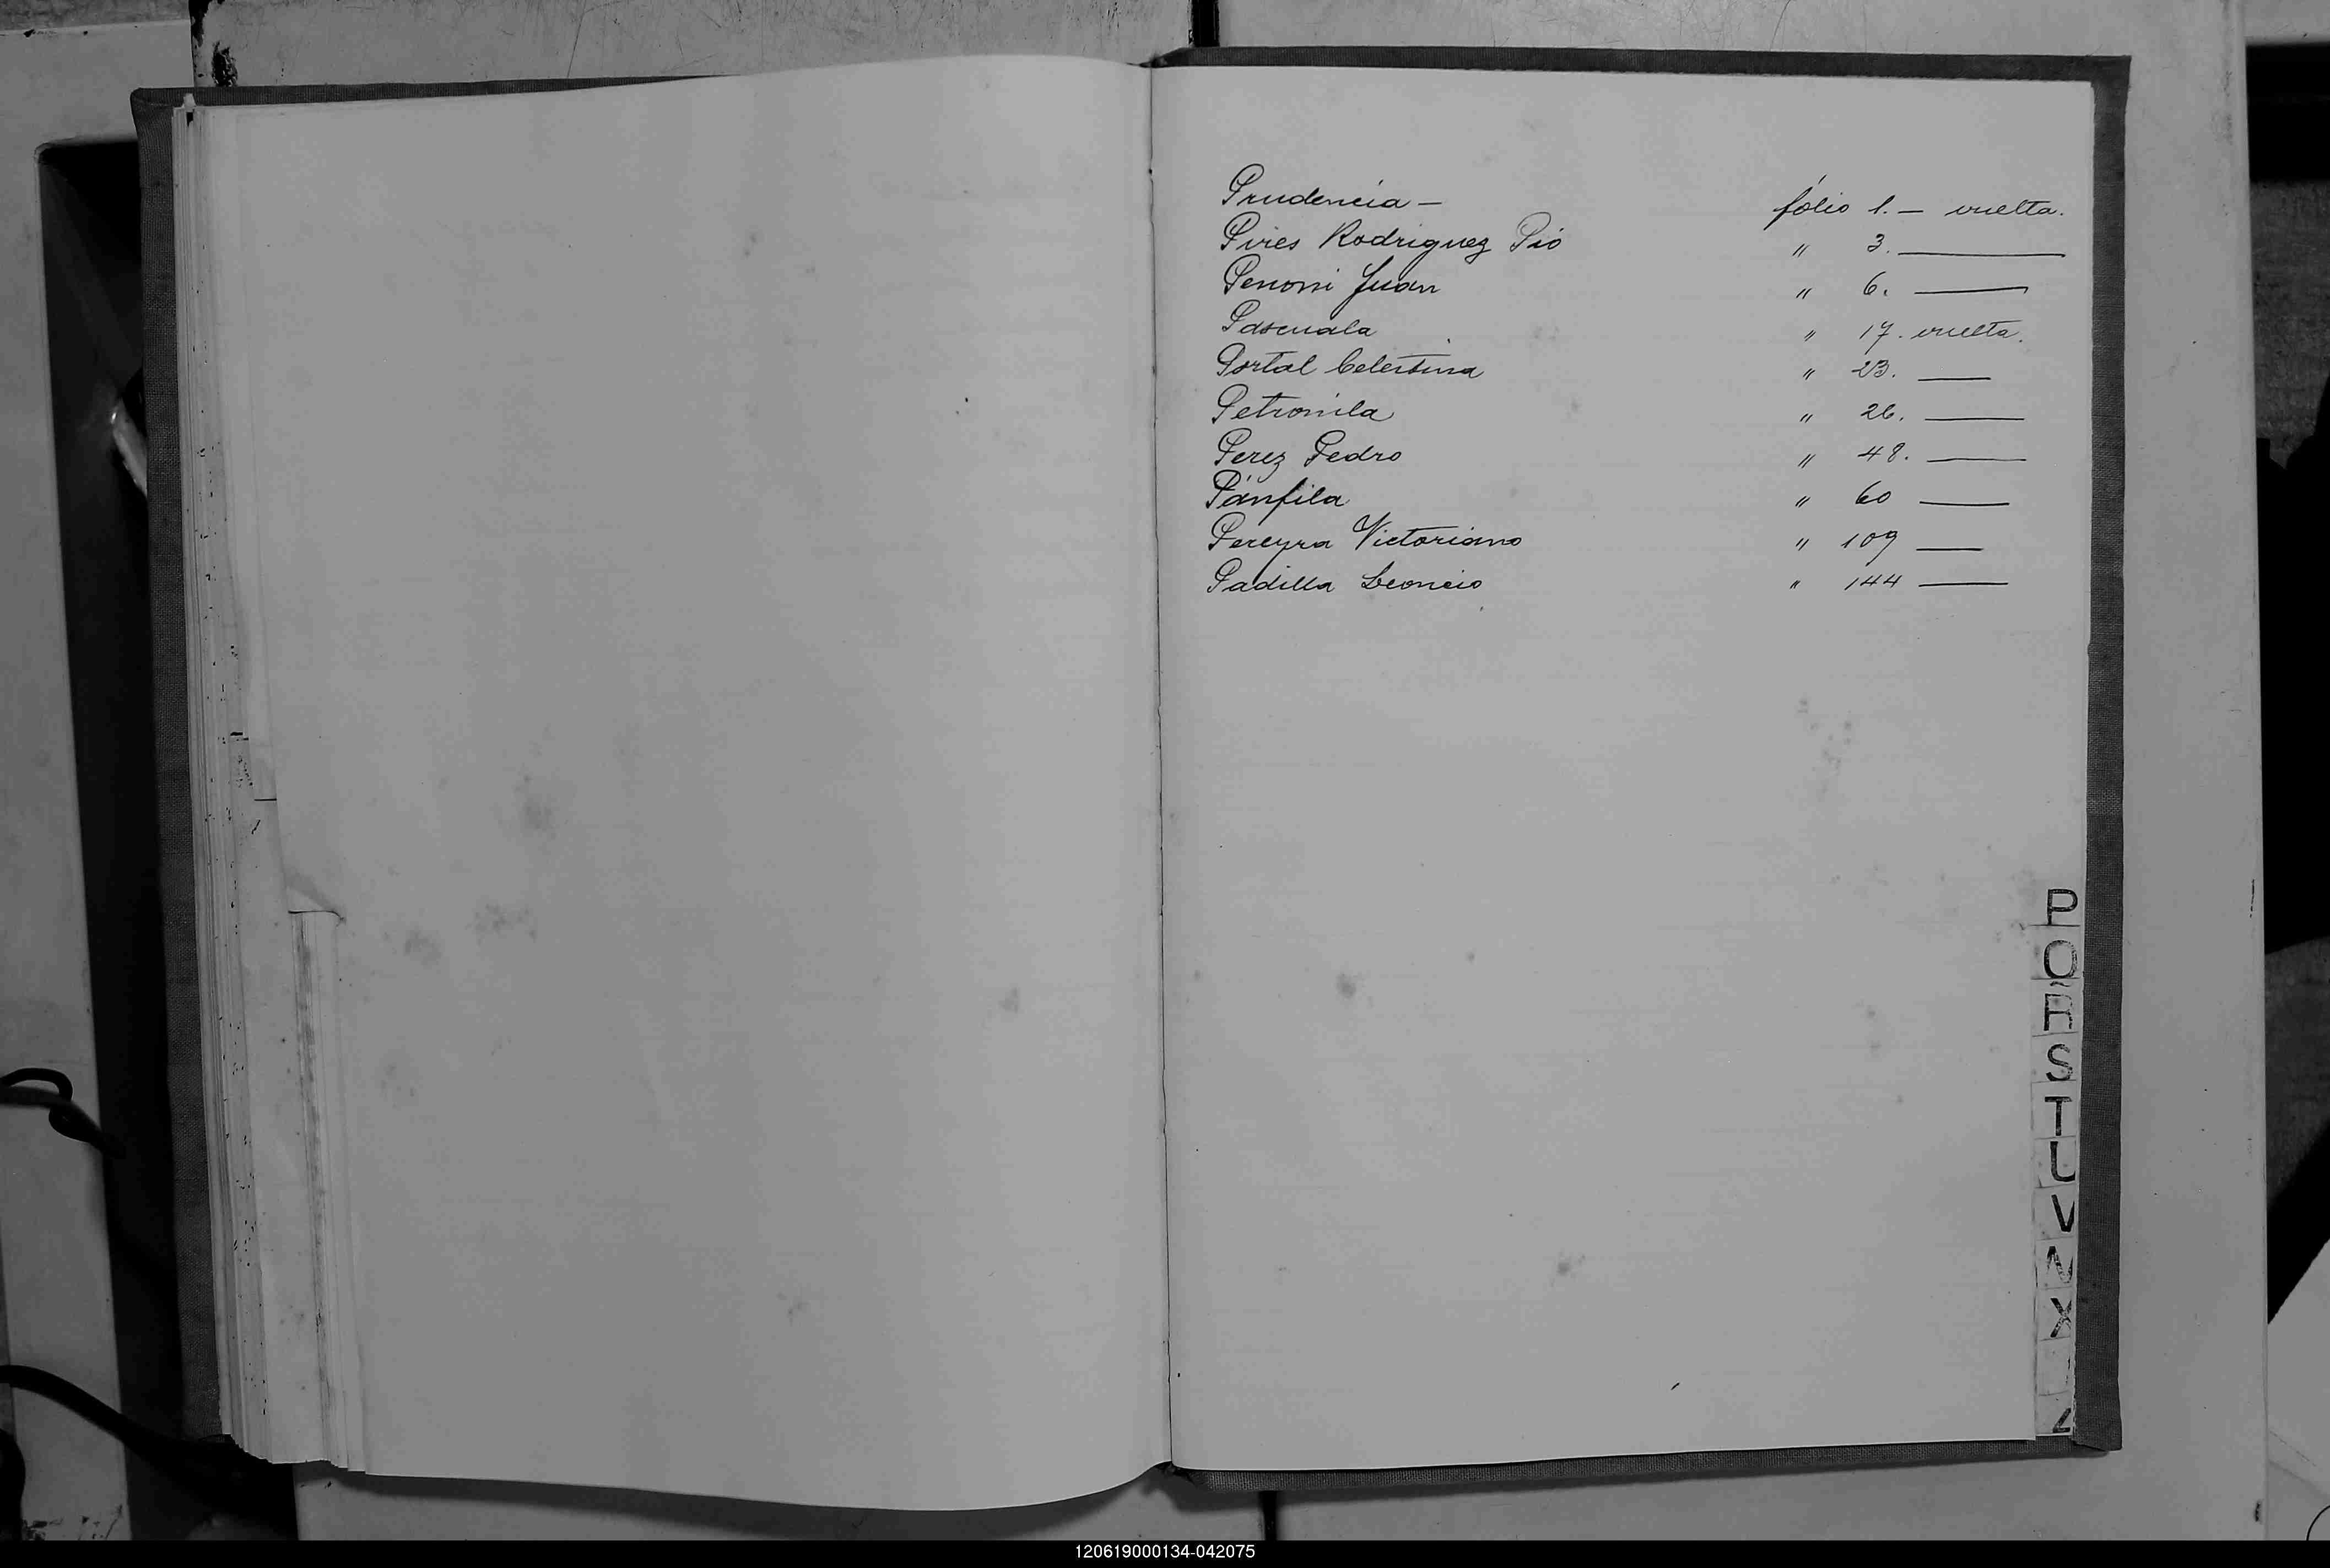 Prudencia — fólio 1. — vuelta.
Pires Rodriguez Pío " 3. ———
Penoni Juan " 6. ———
Pascuala " 17. vuelta.
Portal Celestina " 23. ———
Petronila " 26. ———
Perez Pedro " 48. ———
Pánfila " 60 ———
Pereyra Victoriano " 109 ———
Padilla Leoncio " 144 ———
P
Q
R
S
T
U
V
X
Z
120619000134-042075